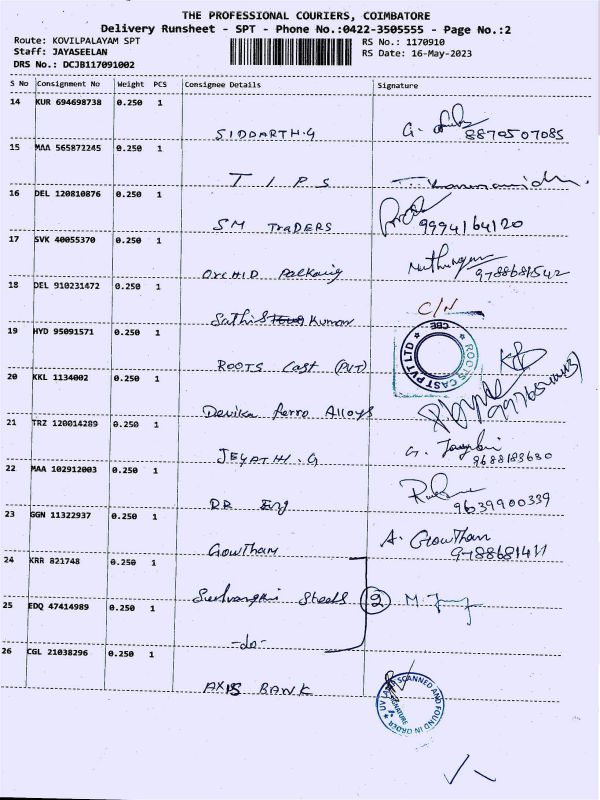 THE PROFESSIONAL COURIERS, COIMBATORE
Delivery Runsheet - SPT - Phone No.:0422-3505555 - Page No.:2
Route: KOVILPALAYAM SPT RS No.: 1170910
Staff: JAYASEELAN RS Date: 16-May-2023
DRS No.: DCJB117091002
S No Consignment No Weight PCS Consignee Details Signature
14 KUR 694698738 0.250 1
SIDDARTH.G G. 8870507085
15 MAA 565872245 0.250 1
TIPS
16 DEL 120810876 0.250 1
SM TRADERS 9994164120
17 SVK 40055370 0.250 1
ORCHID 9788681542
18 DEL 910231472 0.250 1
C/N
Sathis Kumar
19 HYD 95091571 0.250 1
ROOTS CAST PVT LTD CBE
ROOTS Cast (PVT)
20 KKL 1134002 0.250 1
Devika Ferro Alloys
21 TRZ 120014289 0.250 1
JEYATHI.G G. 9688183630
22 MAA 102912003 0.250 1
DR Eng 9639900339
23 GGN 11322937 0.250 1
Gowtham A. Gowtham
24 KRR 821748 0.250 1
Steels 2 M.
25 EDQ 47414989 0.250 1
-do-
26 CGL 21038296 0.250 1
AXIS BANK
UV LAMP SCANNED AND FOUND IN ORDER SIGNATURE